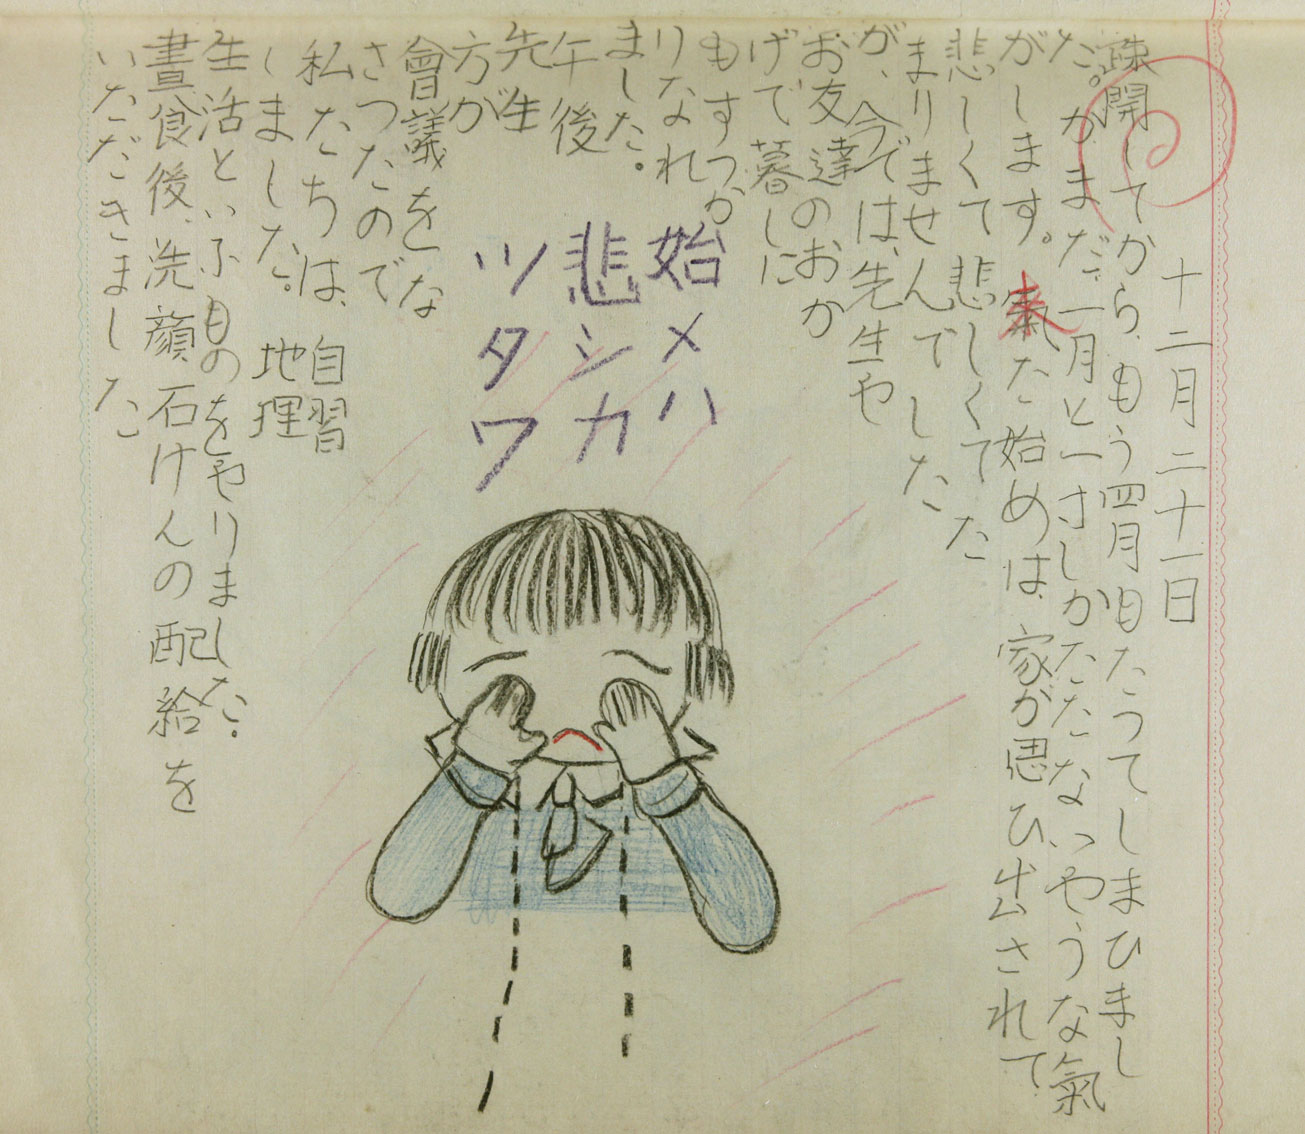 十二月二十一日
疎開してから、もう四月もたつてしまひまし
た。がまだ、一月と一さしかたたないやうな氣
がします。來た始めは、家が思ひ出されて
悲しくて悲しくてた
まりませんでした
が、今では、先生や
お友達のおか
げで暮しに
もすつか
りなれ
ました。
午後
先生
方が
會議をな
さつたので
私たちは、自習
しました。地理
生活といふものをやりました。
晝食後、洗顔石けんの配給を
いただきました
始メハ
悲シカ
ツタワ